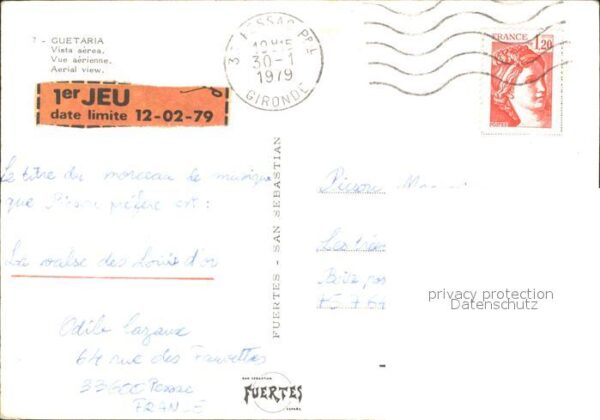 7 - GUETARIA
Vista aérea.
Vue aérienne.
Aerial view.
1er JEU
date limite 12-02-79
33 PESSAC PPAL
18H15
30-1
1979
GIRONDE
FRANCE
1,20
POSTES
Le titre du morceau de musique
que Picsou préfère est :
La valse des Louis d'or
Odile Cazaux
64 rue des Fauvettes
33600 Pessac
FRANCE
FUERTES - SAN SEBASTIAN
Picsou
Les
Boîte pos
privacy protection
Datenschutz
SAN SEBASTIAN
FUERTES
ESPAÑA